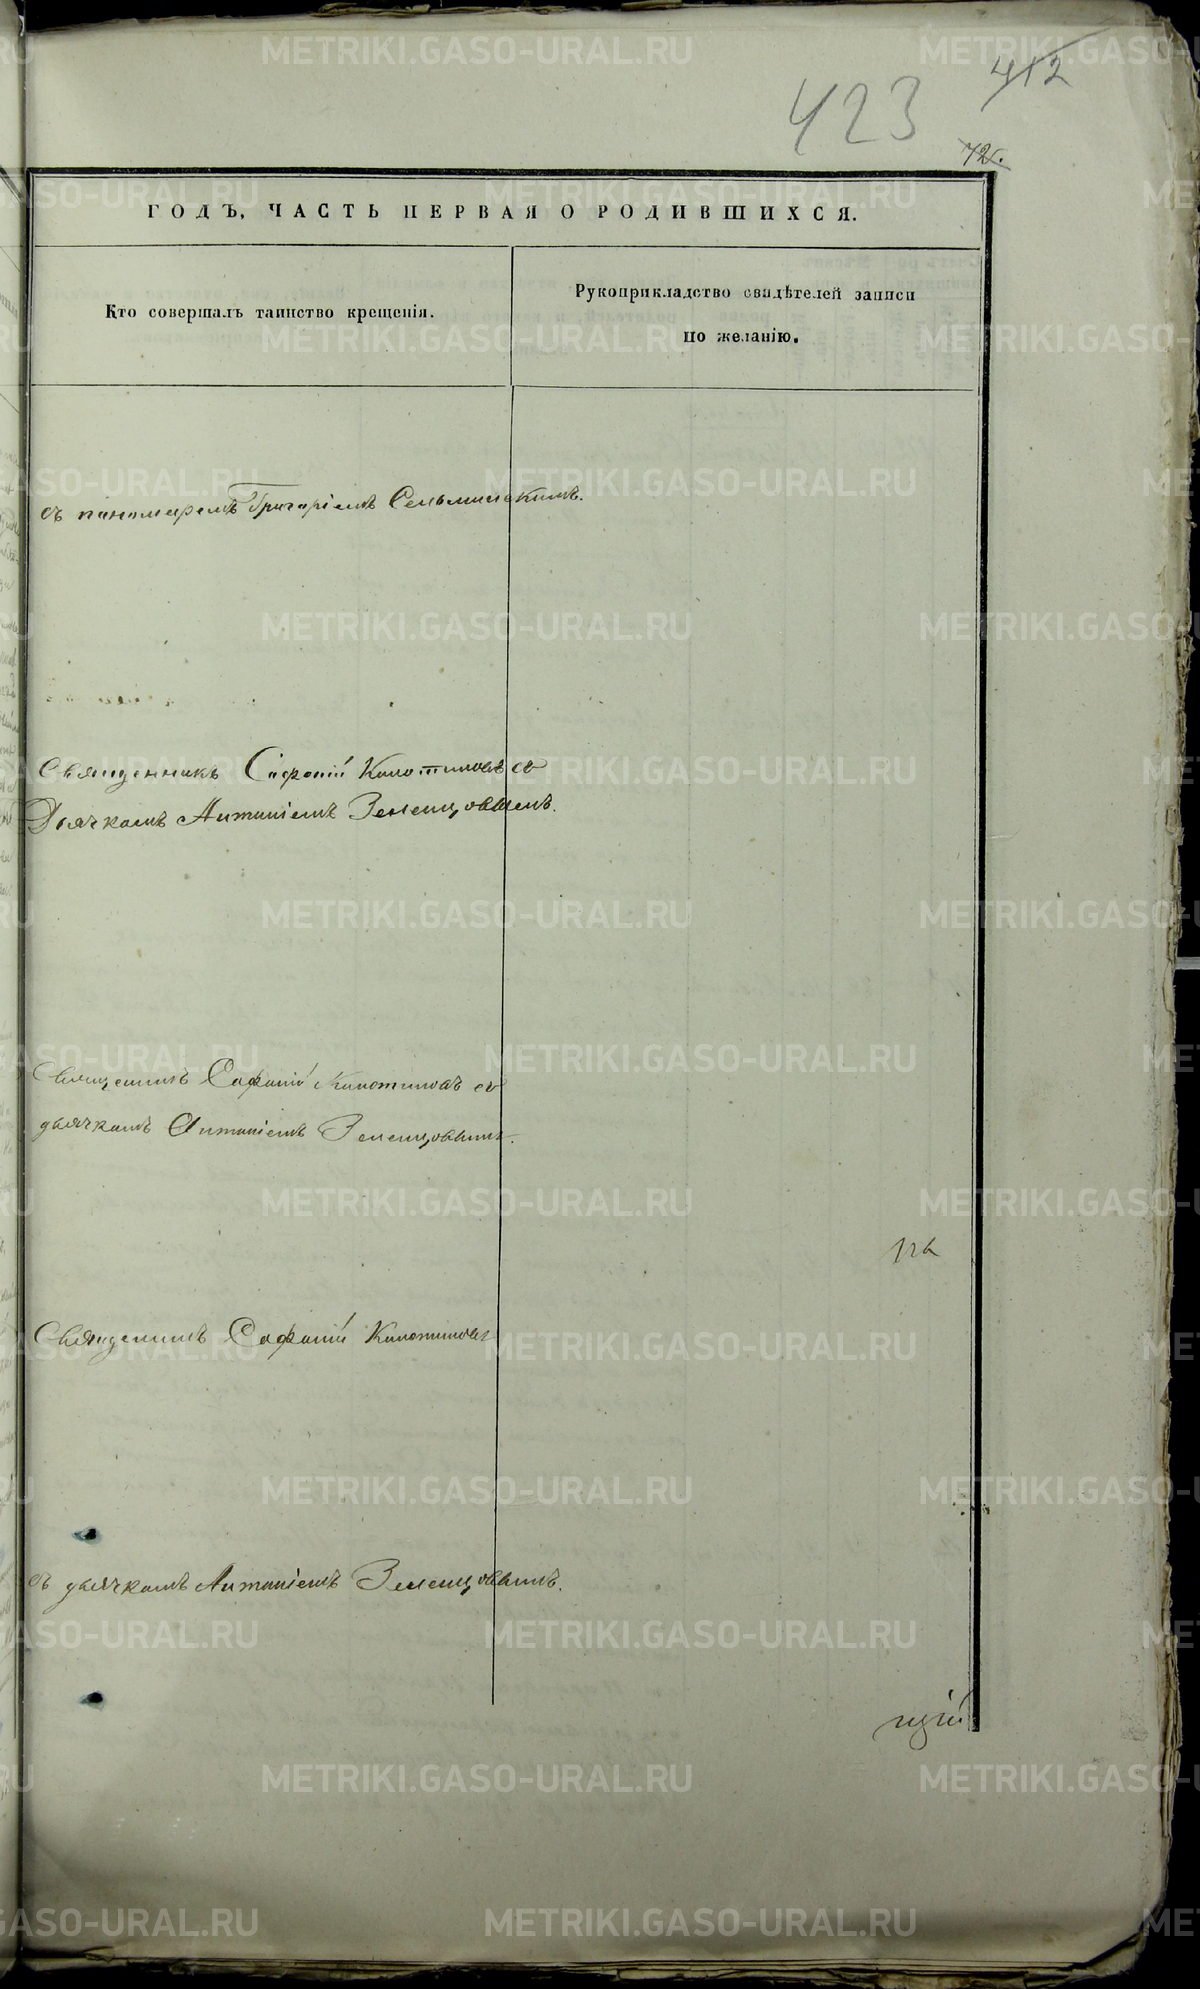 423
412
72.
ГОДЪ, ЧАСТЬ ПЕРВАЯ О РОДИВШИХСЯ.
Кто совершалъ таинство крещенія.
Рукоприкладство свидѣтелей записи
по желанію.
съ пономаремъ Григоріемъ
Священникъ Софоній съ
Дьячкомъ Антоніемъ Земенцовымъ.
Священникъ Софоній съ
дьячкомъ Антоніемъ Земенцовымъ.
Священникъ Софоній
съ дьячкомъ Антоніемъ Земенцовымъ.
METRIKI.GASO-URAL.RU